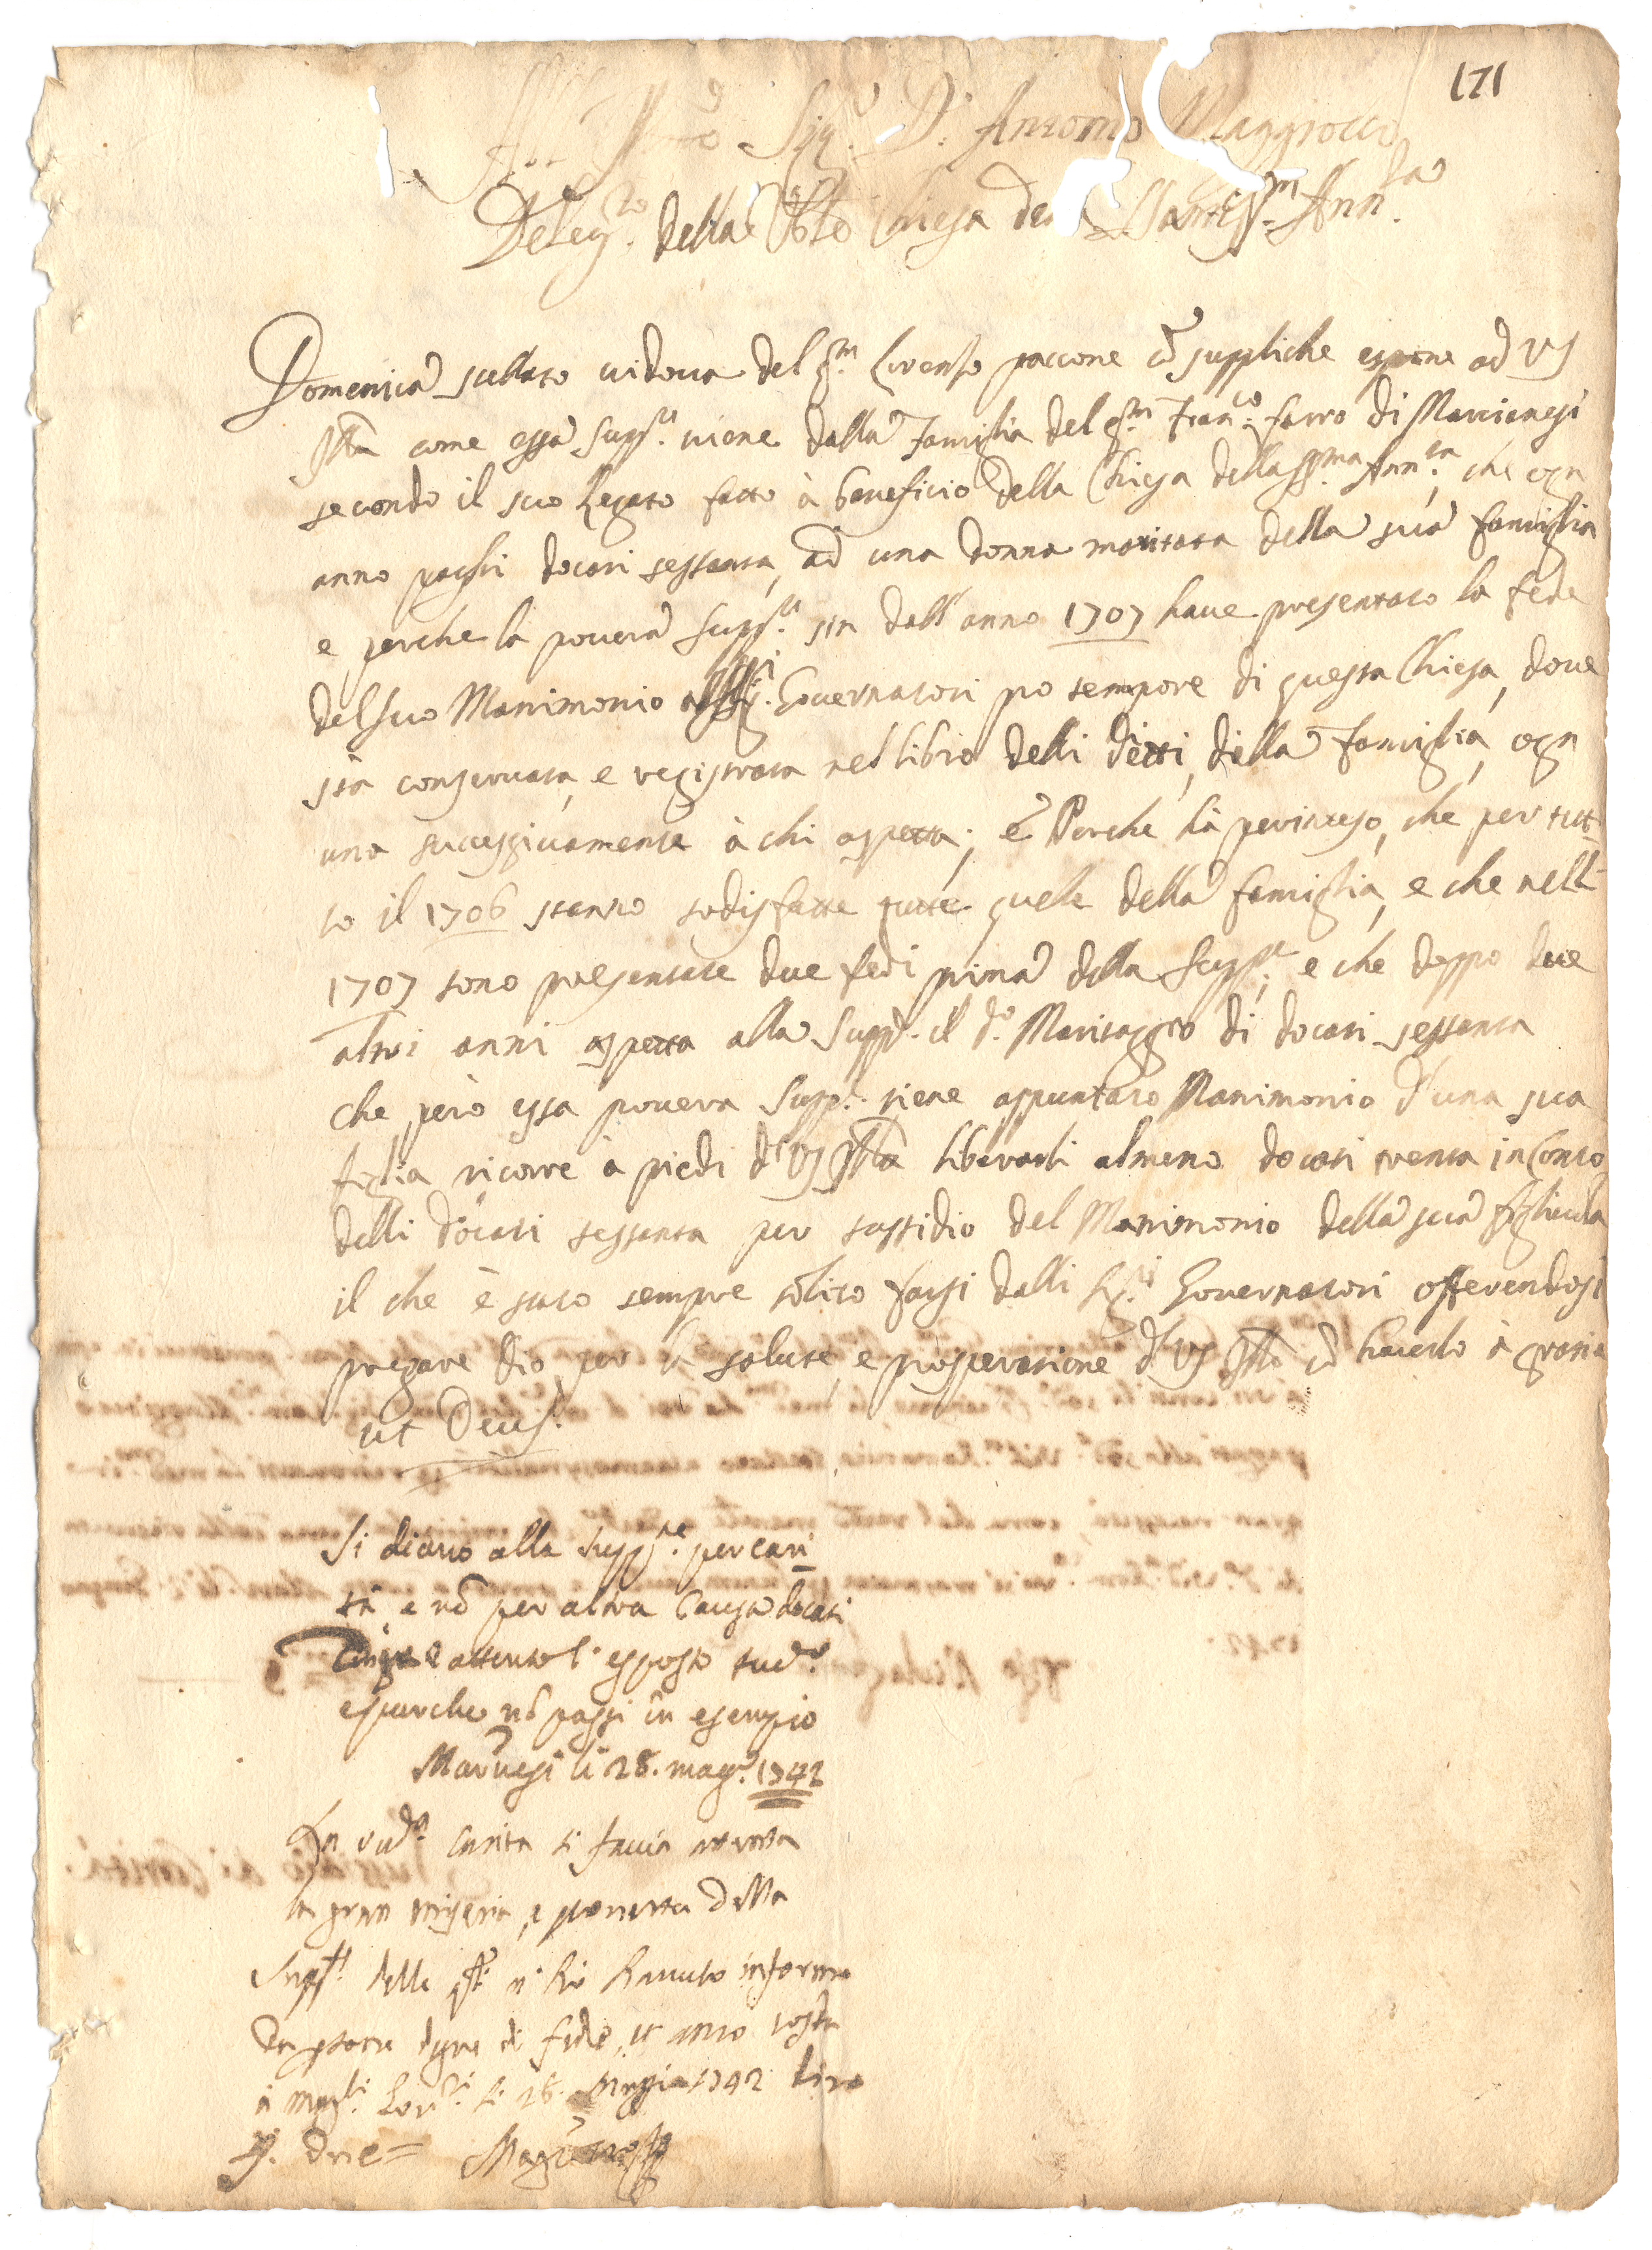 171
Sig.r D. Antonio Maggrocco
Deleg.to della Ven.le Chiesa della Santiss.m Ann.ta
Domenica sullato vidova del q.m Lorenso paccone cõ suppliche espone ad VS
Ill.a come essa supp.te viene dalla famiglia del q.m Fran.co farro di Marcianesi
secondo il suo Legato fatto à beneficio della Chiesa della SS.ma Ann.ta, che ogn
anno paghi docati sessanta, ad una donna maritata della sua famiglia
e perche la povera supp.te sin dall'anno 1707 have presentato la fede
del suo Matrimonio alli SS.ri Governatori pro tempore di questa Chiesa, dove
stà conservata, e registrata nel libro delli detti, della famiglia, ogn
una successivamente à chi aspetta; e Perche hà perinteso, che per tutt
to il 1706 stanno sodisfatte tutte quelle della famiglia, e che nell
1707 sono presentate due fedi prima della supp.te, e che doppo due
altri anni aspetta alla supp.te il d.o Maritaggio di docati sessanta
che però essa povera supp.te tiene appuntato Matrimonio d'una sua
figlia ricorre à piedi di VS Ill.a liberarli almeno docati trenta in conto
delli docati sessanta per sussidio del Matrimonio della sua figliuola
il che è stato sempre solito farsi dalli SS.ri Governatori offerendosi
pregare Dio per la salute, e prosperatione di VS Ill.a cõ haverlo à gratia
ut Deus.
Si diano alla supp.te per cari
tà e nõ per altra causa docati
cinque attento l'esposto sud.o
e purche nõ passi in esempio
Marc.si li 28. mag.o 1742
La sud.a carita si faccia attenta
la gran miseria, e poverta della
Supp.te della q.le n'hò havuto informo
da persone degne di fede, et anco costa
à mag.ci Gov.ri li 28. Maggio 1742 dico
d. due=